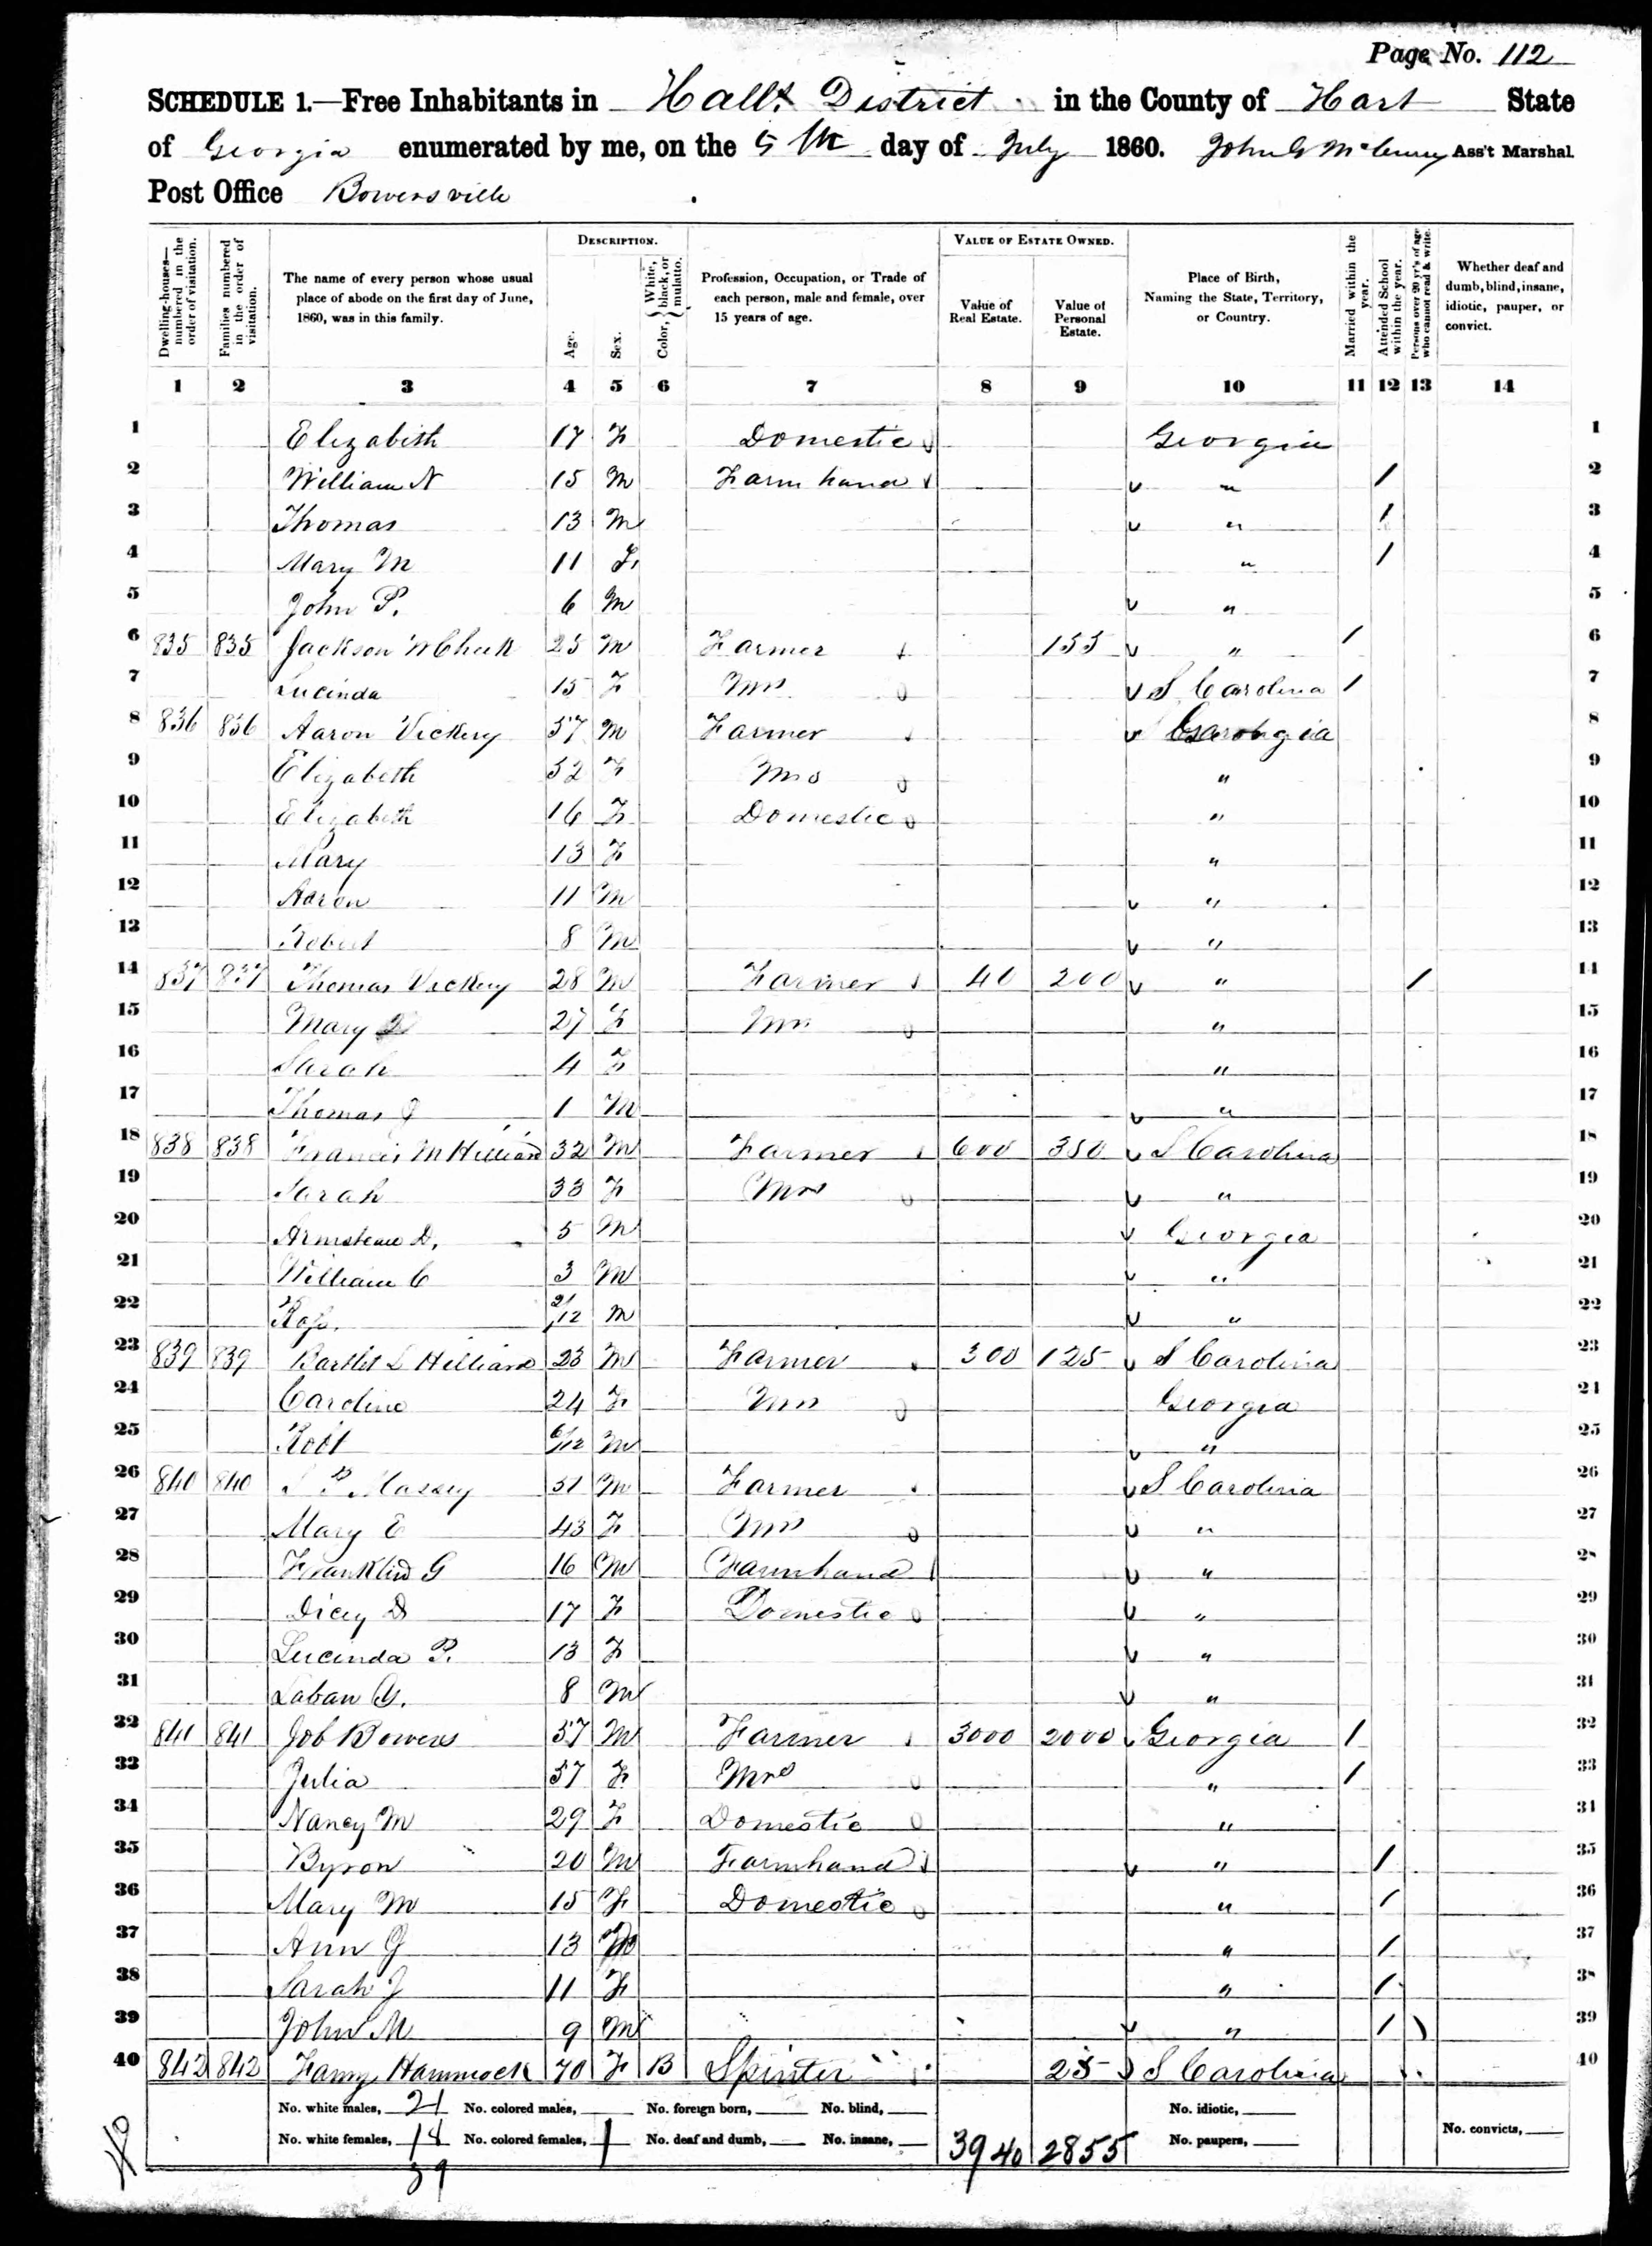 Page No. 112
SCHEDULE 1.—Free Inhabitants in Halls District in the County of Hart State
of Georgia enumerated by me, on the 5th day of July 1860. John G McCurry Ass't Marshal
Post Office Bowersville
DESCRIPTION. VALUE OF ESTATE OWNED.
Dwelling-houses—numbered in the order of visitation.
Families numbered in the order of visitation.
The name of every person whose usual place of abode on the first day of June, 1860, was in this family.
Age.
Sex.
Color, { White, black, or mulatto.
Profession, Occupation, or Trade of each person, male and female, over 15 years of age.
Value of Real Estate.
Value of Personal Estate.
Place of Birth, Naming the State, Territory, or Country.
Married within the year.
Attended School within the year.
Persons over 20 yr's of age who cannot read & write.
Whether deaf and dumb, blind, insane, idiotic, pauper, or convict.
1 2 3 4 5 6 7 8 9 10 11 12 13 14
1 Elizabeth 17 F Domestic Georgia 1
2 William N 15 M Farm hand " / 2
3 Thomas 13 M " / 3
4 Mary M 11 F " / 4
5 John P. 6 M " 5
6 835 835 Jackson Cheek 25 M Farmer 155 " / 6
7 Lucinda 15 F Mrs S Carolina / 7
8 836 836 Aaron Vickery 37 M Farmer Georgia 8
9 Elizabeth 32 F Mrs " 9
10 Elizabeth 16 F Domestic " 10
11 Mary 13 F " 11
12 Aaron 11 M " 12
13 Robert 8 M " 13
14 837 837 Thomas Vickery 28 M Farmer 40 200 " / 14
15 Mary 27 F Mrs " 15
16 Sarah 4 F " 16
17 Thomas J 1 M " 17
18 838 838 Francis M Hilliard 32 M Farmer 600 350 S Carolina 18
19 Sarah 33 F Mrs " 19
20 Armstead D. 5 M Georgia 20
21 William C 3 M " 21
22 2/12 M " 22
23 839 839 Bartlet L Hilliard 23 M Farmer 300 125 S Carolina 23
24 Caroline 24 F Mrs Georgia 24
25 Robt 6/12 M " 25
26 840 840 S P Massey 51 M Farmer S Carolina 26
27 Mary E 43 F Mrs " 27
28 Franklin G 16 M Farmhand " 28
29 Dicey D 17 F Domestic " 29
30 Lucinda P. 13 F " 30
31 Laban 8 M " 31
32 841 841 Job Bowers 57 M Farmer 3000 2000 Georgia / 32
33 Julia 37 F Mrs " / 33
34 Nancy M 29 F Domestic " 34
35 Byron 20 M Farmhand " / 35
36 Mary M 15 F Domestic " / 36
37 Ann J 13 " / 37
38 Sarah J 11 F " / 38
39 John M 9 M " / 39
40 842 842 Famy Hammock 70 F B Spinter 25 S Carolina 40
No. white males, 21 No. colored males, No. foreign born, No. blind, No. idiotic,
No. white females, 18 No. colored females, 1 No. deaf and dumb, No. insane, 3940 2855 No. paupers, No. convicts,
39